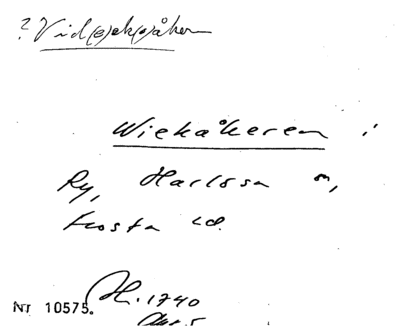 ? Vid(e)ek(o)åker
Wiekåkeren i
Ry, Harlösa sn,
Frosta hd.
H. 1740
NT 10575.